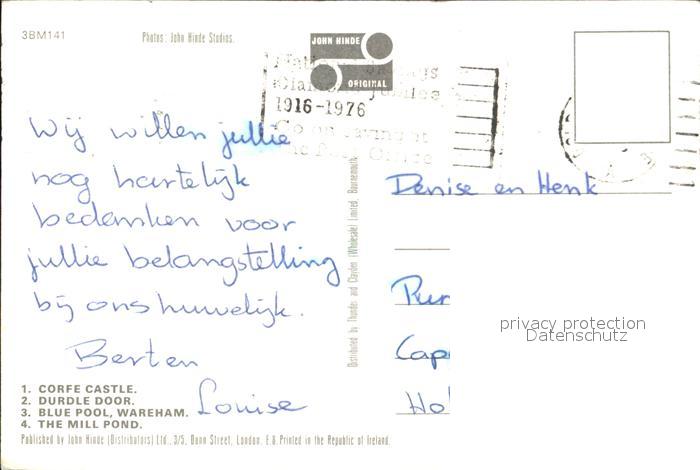 3BM141
Photos: John Hinde Studios.
JOHN HINDE
ORIGINAL
1916-1976
Wij willen jullie
nog hartelijk
bedanken voor
jullie belangstelling
bij ons huwelijk.
Berten
Louise
1. CORFE CASTLE.
2. DURDLE DOOR.
3. BLUE POOL, WAREHAM.
4. THE MILL POND.
Published by John Hinde (Distributors) Ltd., 3/5, Dunn Street, London, E.8. Printed in the Republic of Ireland.
Distributed by Thunder and Clayden (Wholesale) Limited, Bournemouth
Denise en Henk
Pur
Cap
Hol
privacy protection
Datenschutz